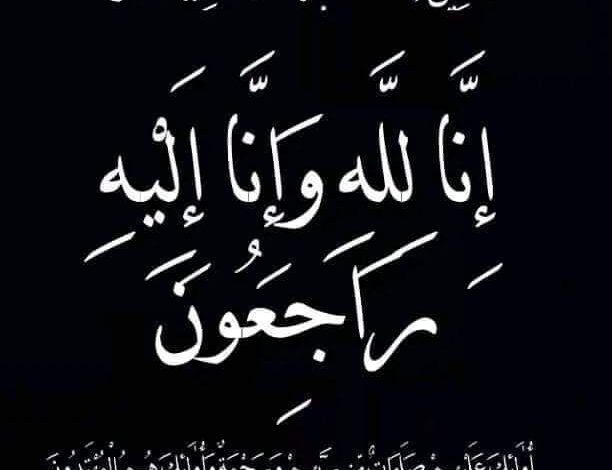 إِنَّا لِلَّهِ وَإِنَّا إِلَيْهِ
رَاجِعُونَ
أُولَئِكَ عَلَيْهِمْ صَلَوَاتٌ مِنْ رَبِّهِمْ وَرَحْمَةٌ وَأُولَئِكَ هُمُ الْمُهْتَدُونَ